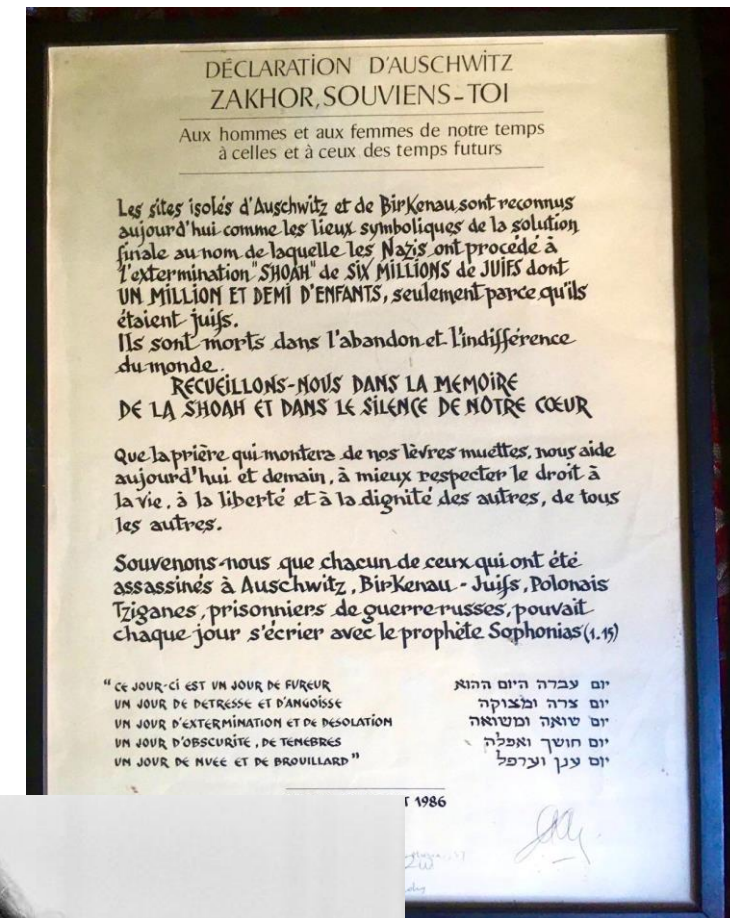 DÉCLARATION D'AUSCHWITZ
ZAKHOR, SOUVIENS-TOI
Aux hommes et aux femmes de notre temps
à celles et à ceux des temps futurs
Les sites isolés d'Auschwitz et de BirKenau sont reconnus
aujourd'hui comme les lieux symboliques de la solution
finale au nom de laquelle les Nazis ont procédé à
l'extermination "SHOAH" de SIX MILLIONS de JUIFS dont
UN MILLION ET DEMI D'ENFANTS, seulement parce qu'ils
étaient juifs.
Ils sont morts dans l'abandon et l'indifférence
du monde.
RECUEILLONS-NOUS DANS LA MEMOIRE
DE LA SHOAH ET DANS LE SILENCE DE NOTRE CŒUR
Que la prière qui montera de nos lèvres muettes, nous aide
aujourd'hui et demain, à mieux respecter le droit à
la vie, à la liberté et à la dignité des autres, de tous
les autres.
Souvenons-nous que chacun de ceux qui ont été
assassinés à Auschwitz, BirKenau - Juifs, Polonais
Tziganes, prisonniers de guerre russes, pouvait
chaque jour s'écrier avec le prophète Sophonias (1.15)
"CE JOUR-CI EST UN JOUR DE FUREUR
UN JOUR DE DETRESSE ET D'ANGOISSE
UN JOUR D'EXTERMINATION ET DE DESOLATION
UN JOUR D'OBSCURITE, DE TENEBRES
UN JOUR DE NUEE ET DE BROUILLARD"
יום עברה היום ההוא
יום צרה ומצוקה
יום שואה ומשואה
יום חושך ואפלה
יום ענן וערפל
T 1986